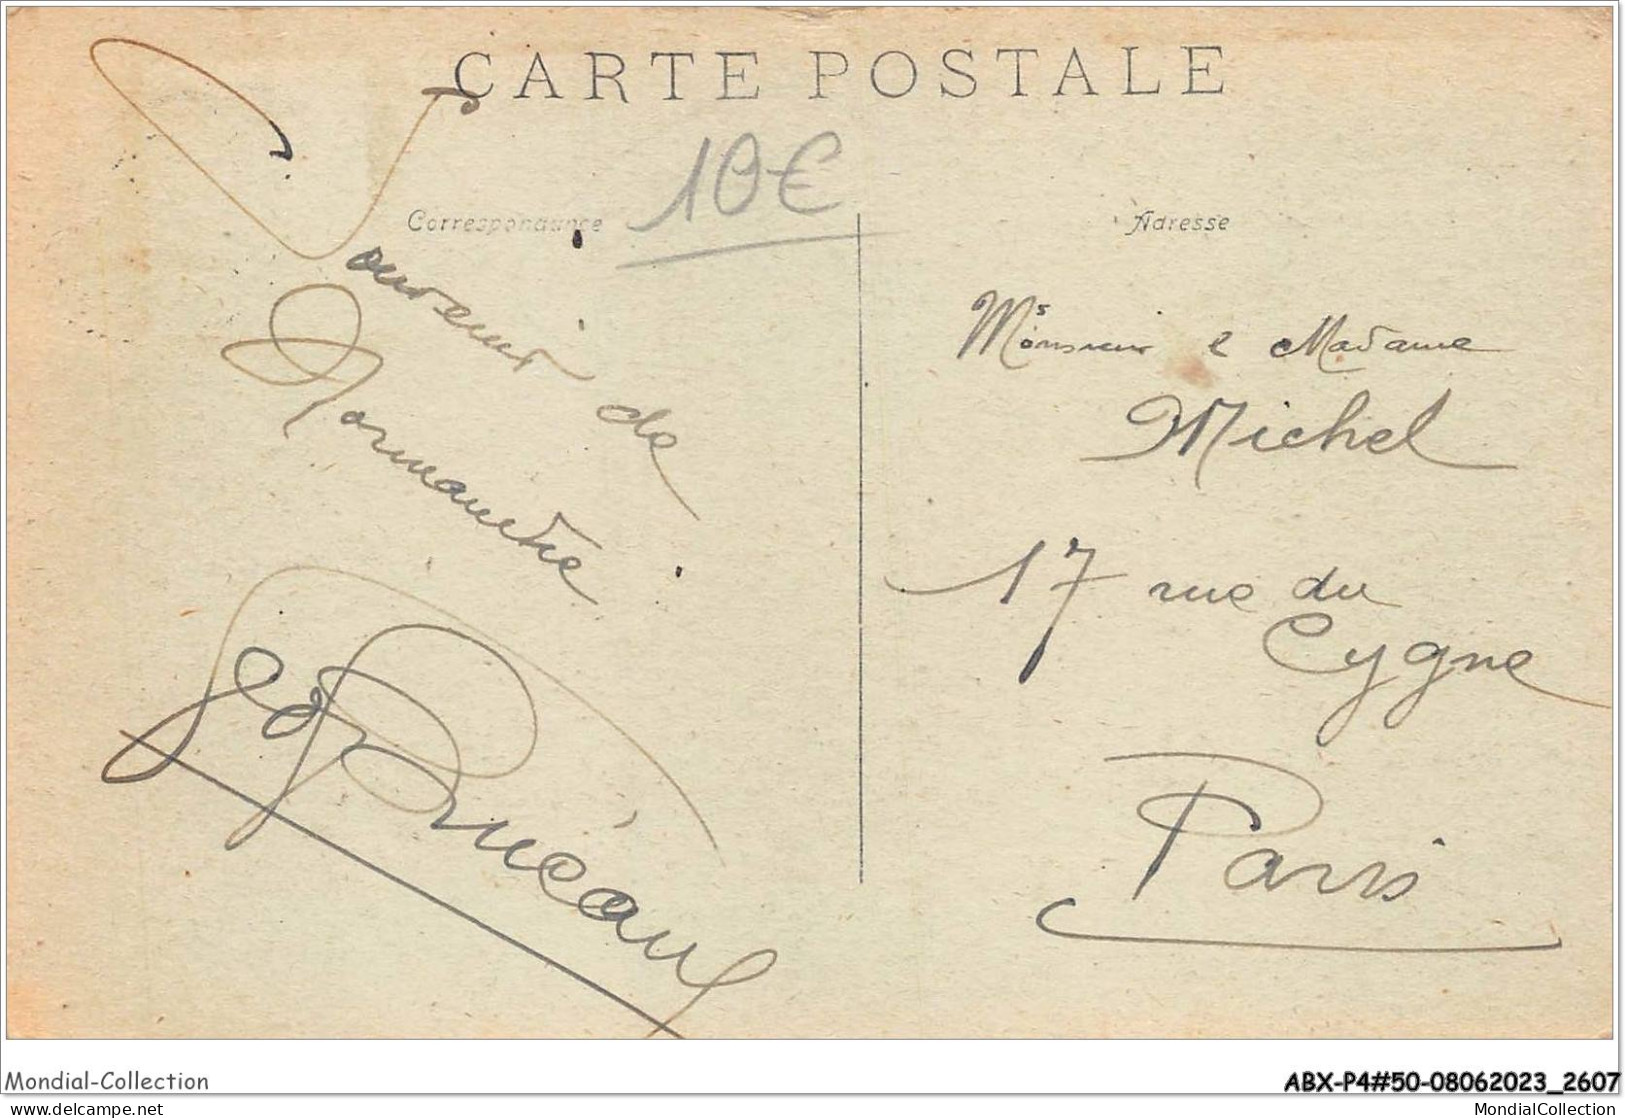 CARTE POSTALE
10€
Correspondance
Adresse
Souvenir de
Normandie
Mrs Monsieur e Madame
Michel
17 rue du
Cygne
Paris
Mondial-Collection
ABX-P4#50-08062023_2607
delcampe.net
MondialCollection